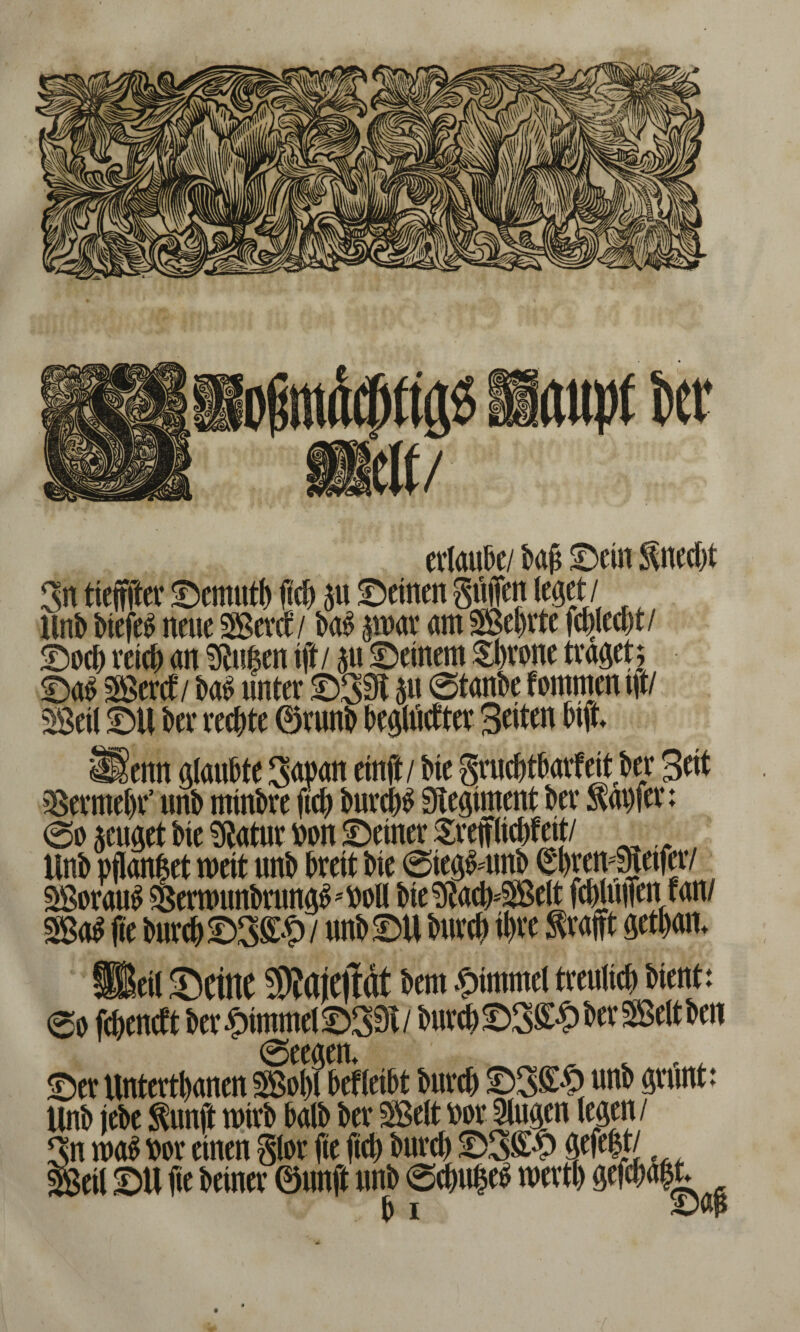 Großmächtigs Haupt der
Welt/
erlaube/ daß Dein Knecht
In tieffster Demuth sich zu Deinen Füssen leget/
Und dieses neue Werck/ das zwar am Wehrte schlecht/
Doch reich an Nutzen ist/ zu Deinem Throne träget;
Das Werck/ das unter DIR zu Stande kommen ist/
Weil DU der rechte Grund beglückter Zeiten bist.
Wenn glaubte Japan einst/ die Fruchtbarkeit der Zeit
Vermehr' und mindre sich durchs Regiment der Käyser:
So zeuget die Natur von Deiner Trefflichkeit/
Und pflantzet weit und breit die Siegs-und Ehren-Reiser/
Woraus Verwundrungs-voll die Nach-Welt schlüssen kan/
Was sie durch DICH/ und DU durch ihre Krafft gethan.
Weil Deine Majestät dem Himmel treulich dient:
So schenckt der Himmel DIR/ durch DICH der Welt den
Seegen.
Der Unterthanen Wohl bekleibt durch DICH und grünt:
Und jede Kunst wird bald der Welt vor Augen legen/
In was vor einen Flor sie sich durch DICH gesetzt/
Weil DU sie deiner Gunst und Schutzes werth geschätzt.
b 1 Daß